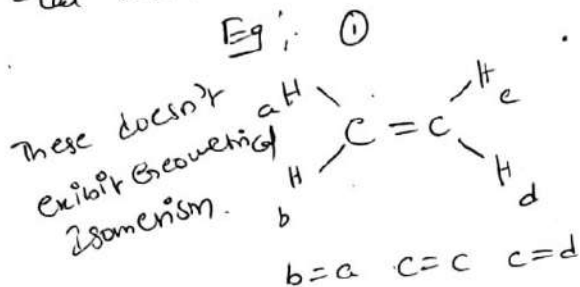 Eg: ①
These doesn't
exibit Geometrical
Isomerism.
a H
H c
C = C
H
b
H
d
b=a c=c c=d